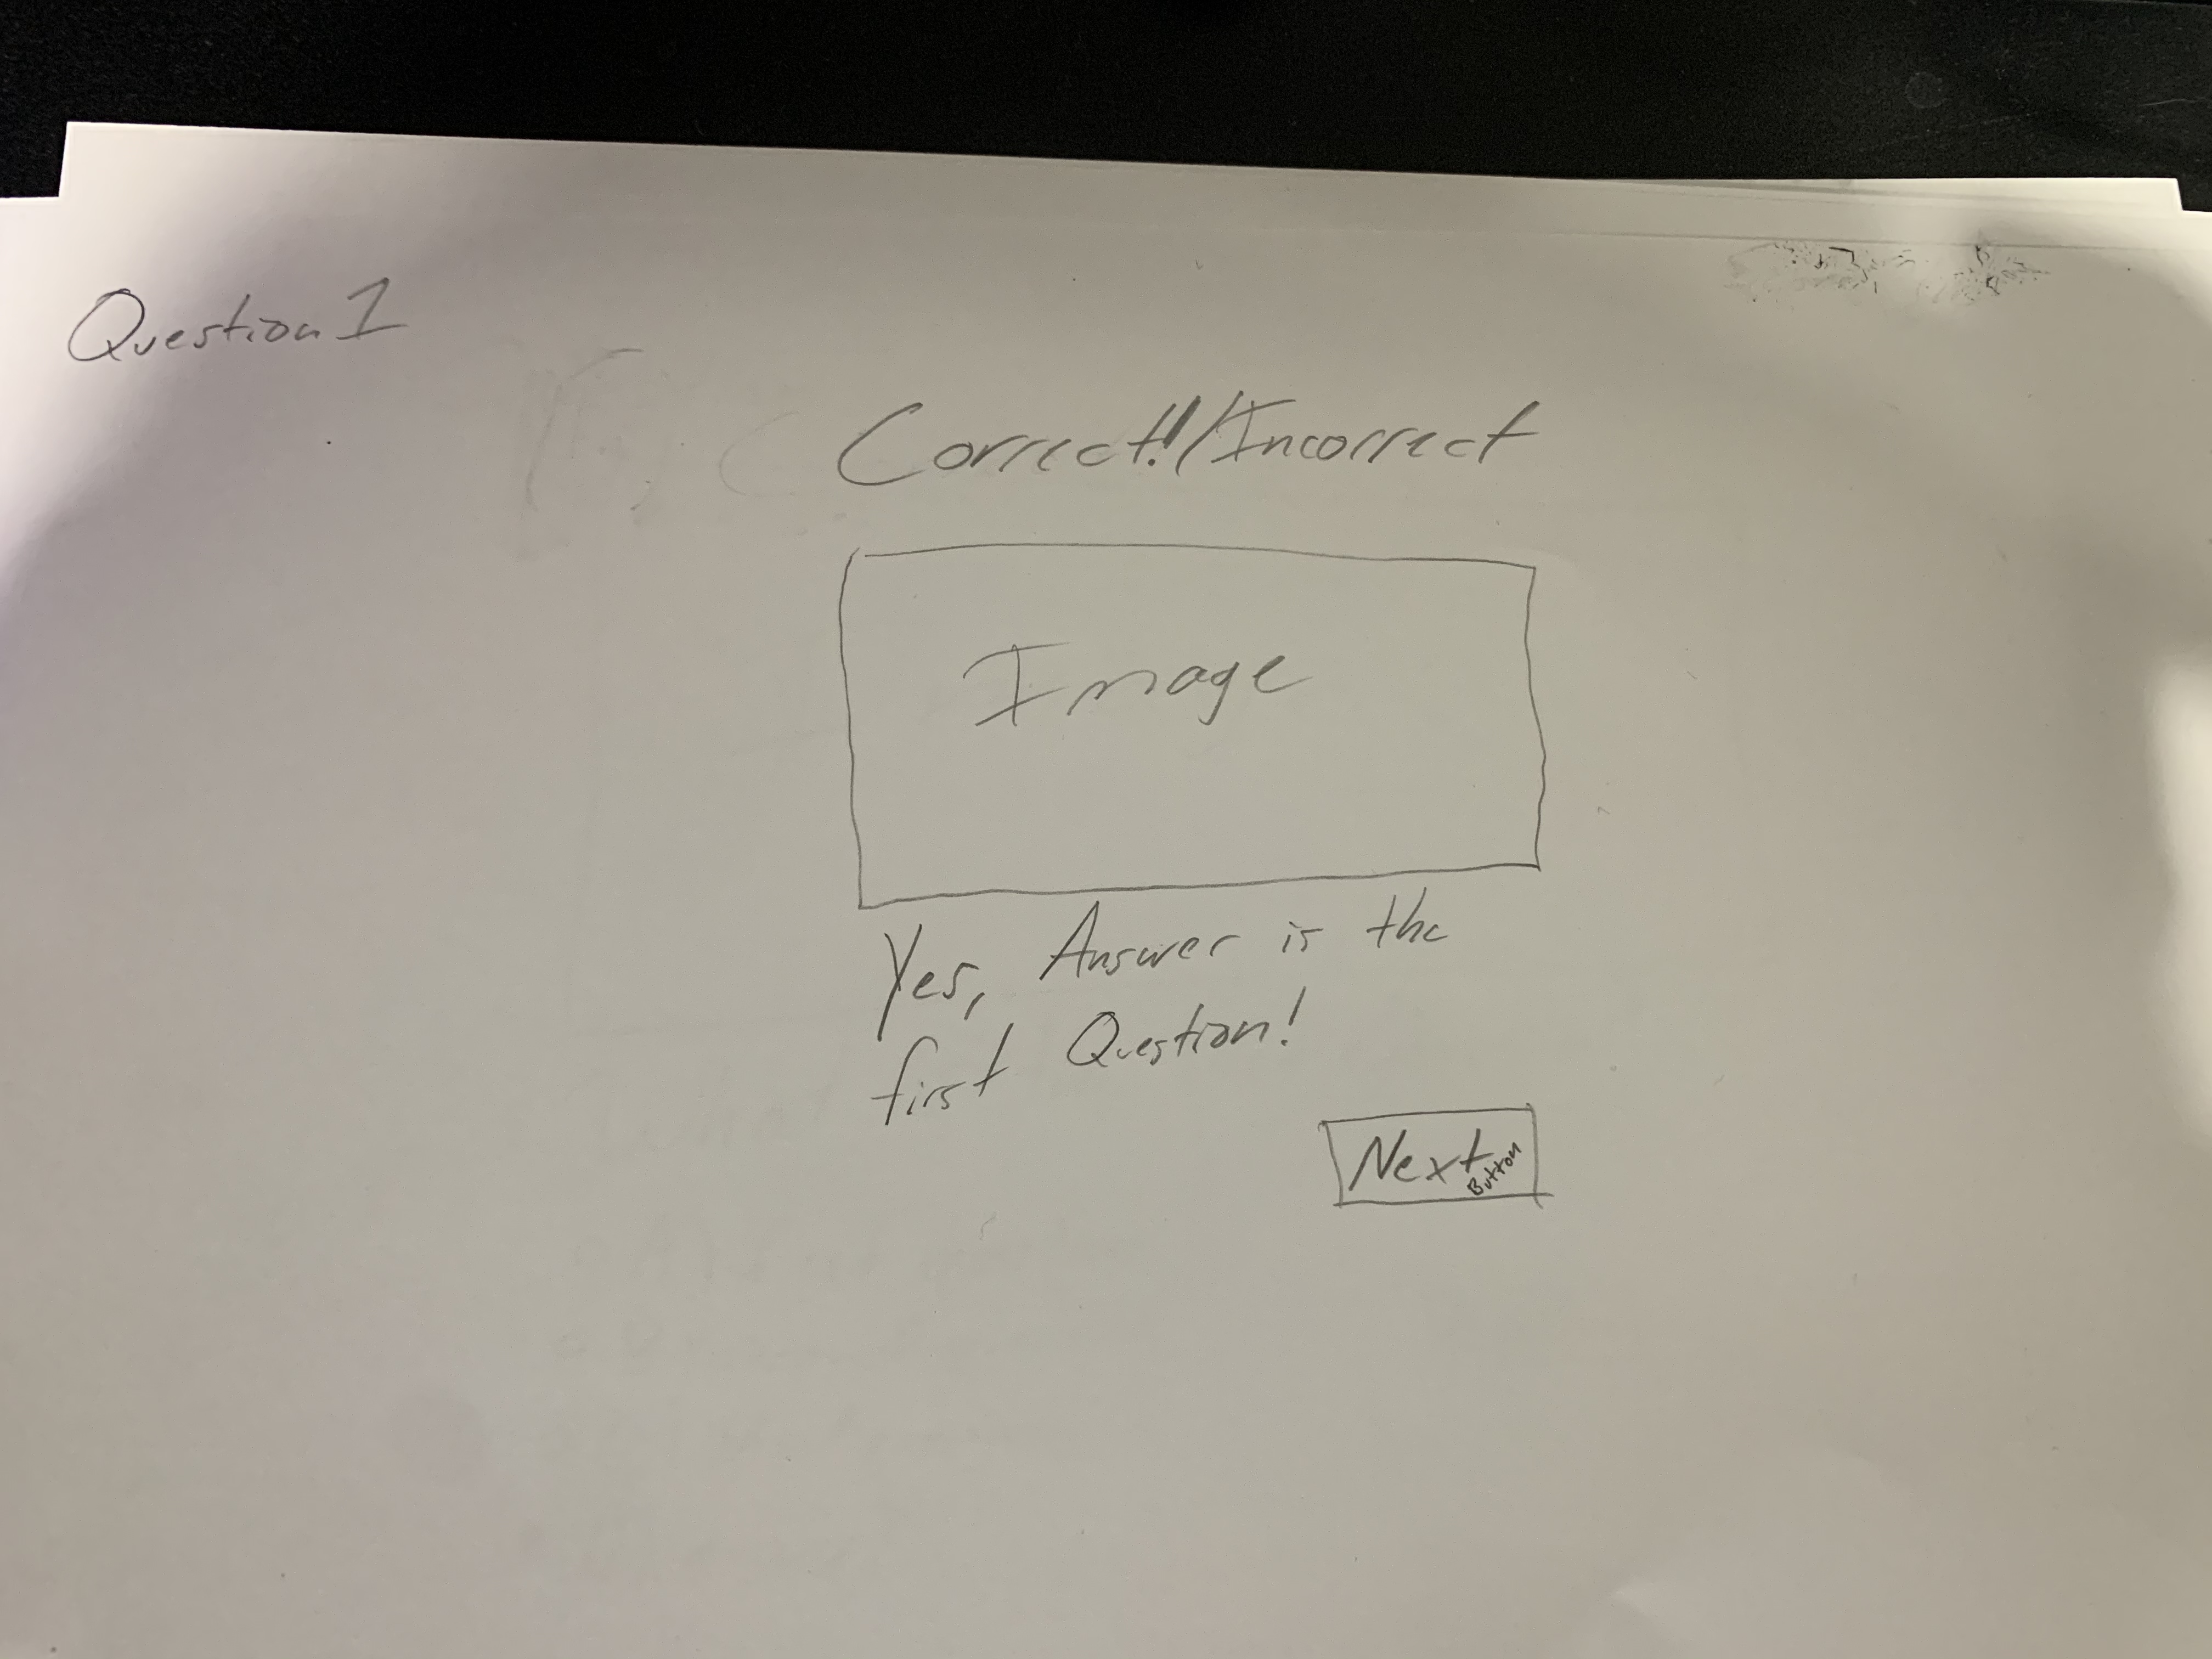 Question 1
Correct!/Incorrect
Image
Yes, Answer is the
first Question!
Next
Button